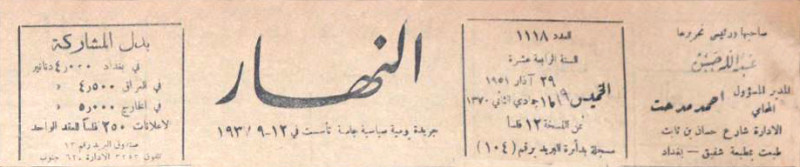 صاحبها ورئيس تحريرها
عبدالله حسن
المدير المسؤول
المحامي
احمد مدحت
الادارة شارع حسان بن ثابت
طبعت بمطبعة شفيق - بغداد
العدد ١١١٨
السنة الرابعة عشرة
٢٩ آذار ١٩٥١
الخميس
جمادي الثاني ١٣٧٠
ثمن النسخة ١٢ فلساً
مسجلة بدائرة البريد برقم (١٠٤)
النهار
جريدة يومية سياسية جامعة تأسست في ١٢-٩-١٩٣٧
بدل المشاركة
في بغداد ٤٫٠٠٠ دنانير
في العراق ٤٫٥٠٠ »
في الخارج ٥٫٠٠٠ »
لاعلانات ٢٥٠ فلساً للعقد الواحد
صندوق البريد رقم ١٣
تلفون ٣٢٩٢ الادارة ٦٢٠ جنوب